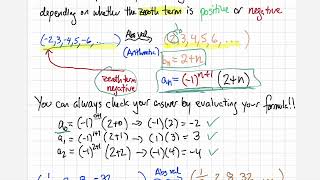 depending on whether the zeroth term is positive or negative
(-2,3,-4,5,-6, ...) Abs val (2,3,4,5,6, ...)
(Arithmetic)
aₙ = 2+n
zeroth term negative
aₙ = (-1)ⁿ⁺¹ (2+n)
You can always check your answer by evaluating your formula!!
a₀ = (-1)⁰⁺¹ (2+0) → (-1)(2) = -2 ✓
a₁ = (-1)¹⁺¹ (2+1) → (1)(3) = 3 ✓
a₂ = (-1)²⁺¹ (2+2) → (-1)(4) = -4 ✓
Abs val